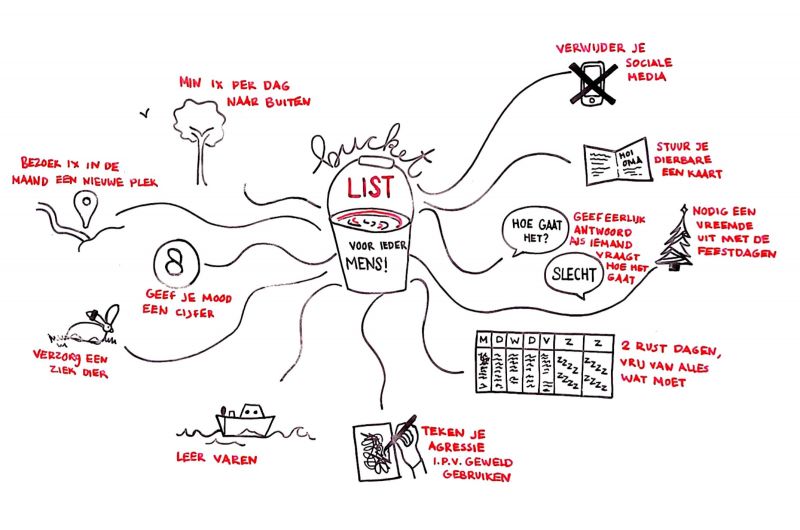 bucket
LIST
VOOR IEDER
MENS!
MIN 1X PER DAG
NAAR BUITEN
BEZOEK 1X IN DE
MAAND EEN NIEUWE PLEK
8
GEEF JE MOOD
EEN CIJFER
VERZORG EEN
ZIEK DIER
LEER VAREN
TEKEN JE
AGRESSIE
I.P.V. GEWELD
GEBRUIKEN
M D W D V Z Z
ZZZZ ZZZZ
ZZZZ ZZZZ
2 RUST DAGEN,
VRIJ VAN ALLES
WAT MOET
NODIG EEN
VREEMDE
UIT MET DE
FEESTDAGEN
HOE GAAT
HET?
SLECHT
GEEF EERLIJK
ANTWOORD
ALS IEMAND
VRAAGT
HOE HET
GAAT
HOI
OMA
STUUR JE
DIERBARE
EEN KAART
VERWIJDER JE
SOCIALE
MEDIA